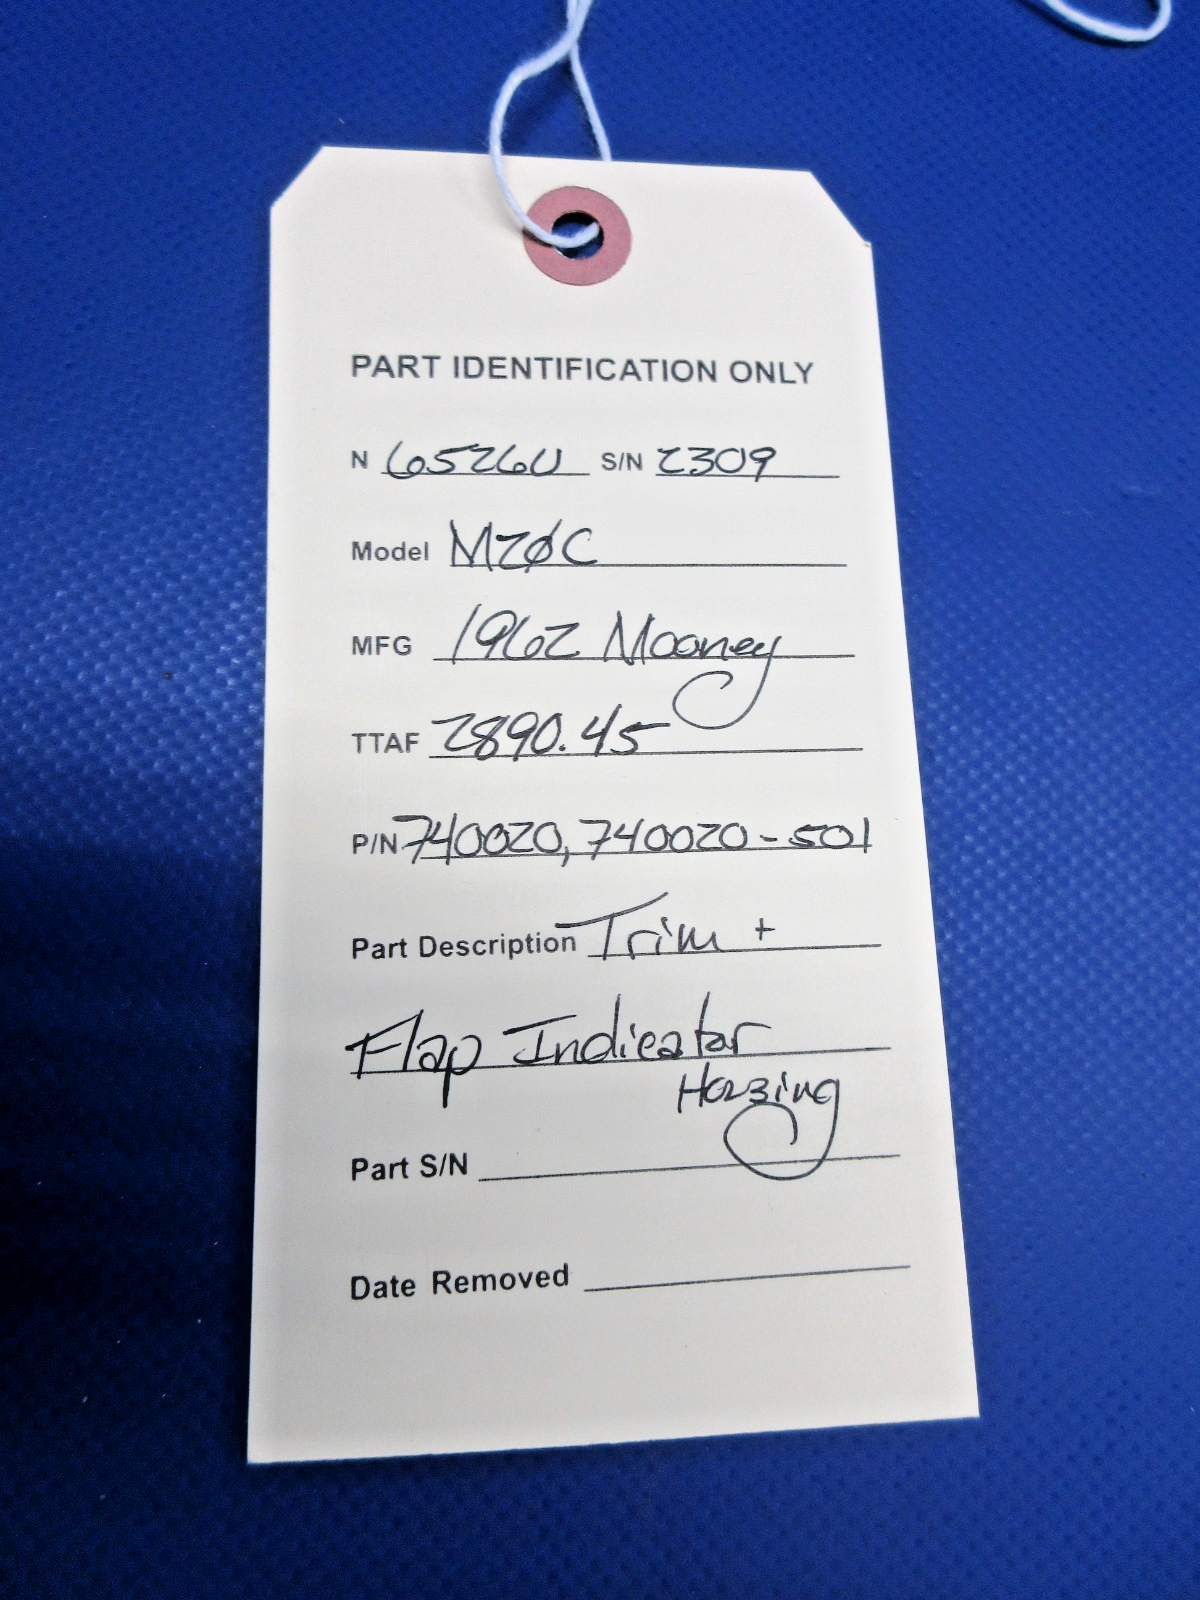 PART IDENTIFICATION ONLY
N 6526U S/N 2309
Model M2ØC
MFG 1962 Mooney
TTAF 2890.45
P/N 740020, 740020-501
Part Description Trim +
Flap Indicator
Housing
Part S/N
Date Removed